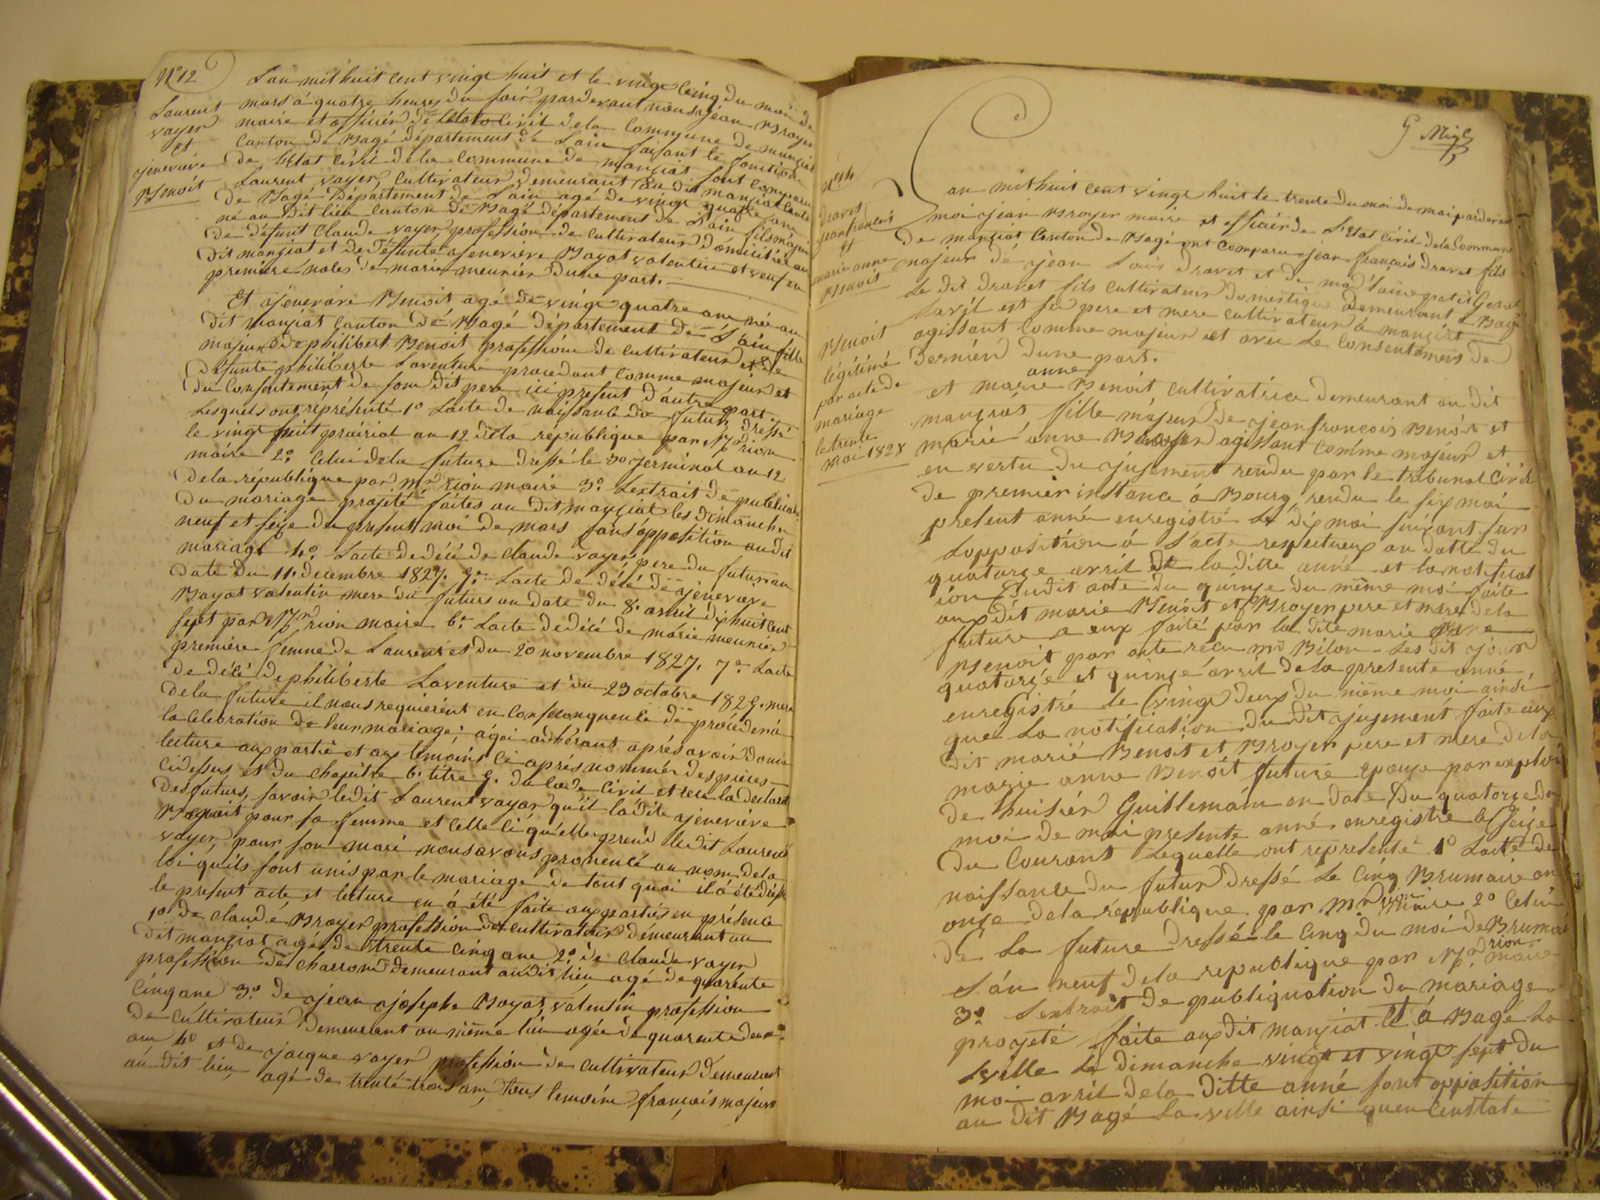 N° 12
Laurent
vayer
et
jenevaive
Benoit
L'an mil huit cent vingt huit et le vingt cinq du mois de
mars à quatre heures du soir pardevant nous jean Broyer
maire et officier de l'état civil de la commune de manziat
canton de Bagé département de L'ain faisant le fonction
de l'état civil de la commune de manziat sont comparu
Laurent vayer cultivateur demeurant au dit manziat canton
de Bagé Département de L'ain agé de vingt quatre ans
né au dit lieu canton de Bagé département de L'ain fils majeur
de défunt Claude vayer profession de cultivateur domicilié au
dit manziat et de défunte jenevieve Bayat valentin et veuf en
premiere noces de marie meunier d'une part.
Et jenevaive Benoit agé de vingt quatre ans née au
dit manziat canton de Bagé département de L'ain fille
majeur de philibert Benoit profession de cultivateur et de
defunte philiberte Laventure procedant comme majeur et
du consentement de son dit pere ici present d'autre part.
Lesquels ont répresenté 1° L'acte de naissance du futur dressé
le vingt huit prairial an 12 de la république par Mr rion
maire 2° Celui de la future dressé le 30 germinal an 12
de la république par mr rion maire 3° L'extrait de publication
du mariage projeté faites au dit manziat les dimanches
neuf et seize du present moi de mars sans opposition au dit
mariage 4° L'acte de décé de claude vayer pere du futur au
date du 11 decembre 1827. 5° L'acte de décé de jenevieve
Bayat valentin mere du futur au date du 8 avril dix huit cent
sept par Mr rion maire 6° L'acte de décé de marie meunier
première femme de Laurent et du 20 novembre 1827. 7° L'acte
de décé de philiberte Laventure et du 23 octobre 1825. mere
de la future il nous requierent en consequence de procéder à
la celebration de leur mariage; a quoi adhérant après avoir donné
lecture aux partie et aux temoins ci après nommés des pièces
ci dessus et du chapitre 6 titre 5 du code civil et reçu la declaration
des futurs, savoir ledit Laurent vayer qu'il la dite jenevieve
Benoit pour sa femme et celle ci qu'elle prend le dit Laurent
vayer pour son mari nous avons prononcé au nom de la
loi qu'ils sont unis par le mariage de tout quoi il a été dressé
le present acte et lecture en à été faite aux parties en présence
1° de claude Broyer profession de cultivateur demeurant au
dit manziat agé de trente cinq ans 2° de Claude vayer
profession de charron demeurant au dit lieu agé de quarente
cinq ans 3° de jean joseph Bayat valentin profession
de cultivateur demeurant au même lieu agée de quarente deux
ans 4° et de jacque vayer profession de cultivateur demeurant
au dit lieu agé de trente trois ans, tous temoins français majeurs
N° 14
dravet
jean francois
et
marie anne
Benoit
Benoit
légitimé
par acte de
mariage
le trente
mai 1828
L'an mil huit cent vingt huit le trente du moi de mai pardevant
moi jean Broyer maire et officier de l'Etat civil de la commune
de manziat canton de Bagé ont comparu jean françois dravet fils
majeur de jean Louis dravet et de
le dit dravet fils cultivateur domestique demeurant a Bagé
la ville et ses pere et mere cultivateur à manziat
agissant comme majeur et avec le consentement de
dernier d'une part.
et marie anne Benoit cultivatrice demeurant au dit
manziat fille majeur de jean francois Benoit et
marie anne Broyer agissant comme majeur et
en vertu du jugement rendu par le tribunal civil
de premier instance à Bourg rendu le six moi
present année enregistré le dix moi suivant sur
l'opposition a l'acte respectueux au datte du
quatorze avril de la ditte anné et la notificat
ion du dit acte du quinze du même moi faite
aux dit marie Benoit et Broyer pere et mere de la
future a eux faite par la dite marie anne
Benoit par acte reçu mr Bilon les dit jour
quatorze et quinze avril de la presente anné
enregistré le vingt deux du même moi ainsi
que la notification du dit jugement faite aux
dit marie Benoit et Broyer pere et mere de la
marie anne Benoit future epouse par exploit
de huisier Guillemain en date du quatorze du
moi de mai presente année enregistré le seize
du courant Lequelle ont representé 1° L'acte de
naissance du futur dressé le cinq Brumaire an
onze de la république par mr rion maire 2° Celui
de la future dressé le cinq du moi de Brumaire
L'an neuf de la republique par Mr rion maire
3° L'extrait de publiquation du mariage
proyeté faite aux dit manziat et à Bagé la
ville le dimanche vingt et vingt sept du
moi avril de la ditte anné sans opposition
au dit Bagé la ville ainsi qu'en constate